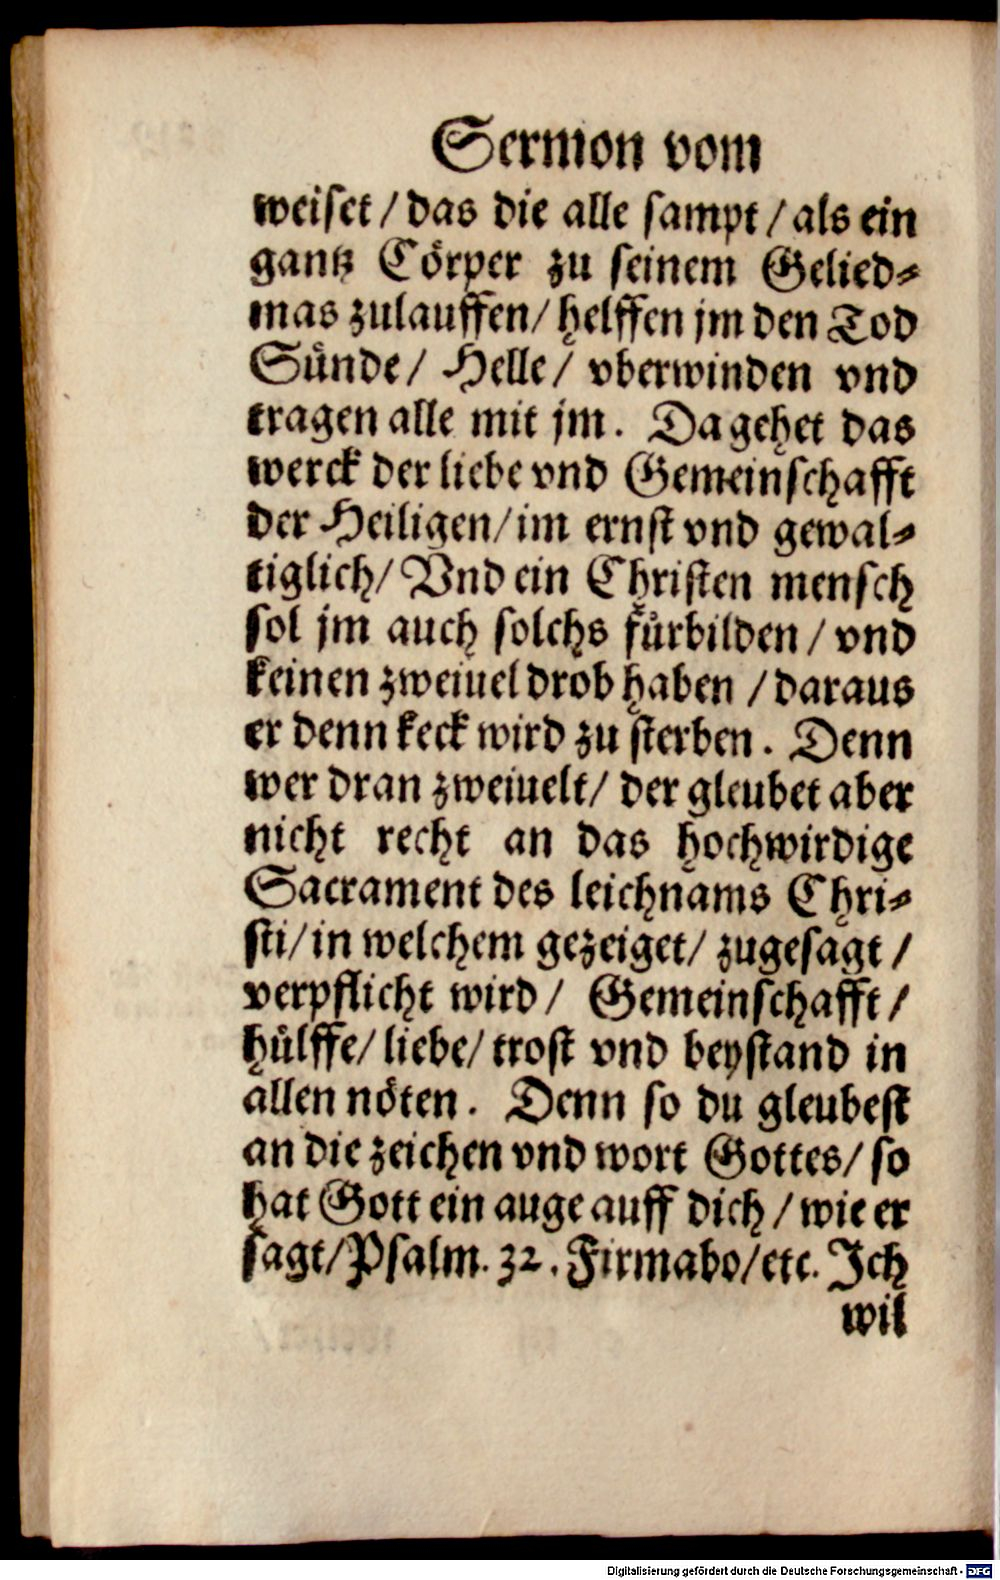 Sermon vom
weiset / das die alle sampt / als ein
gantz Cörper zu seinem Gelied-
mas zulauffen / helffen jm den Tod
Sünde / Helle / vberwinden vnd
tragen alle mit jm. Da gehet das
werck der liebe vnd Gemeinschafft
der Heiligen / im ernst vnd gewal-
tiglich / Vnd ein Christen mensch
sol jm auch solchs fürbilden / vnd
keinen zweiuel drob haben / daraus
er denn keck wird zu sterben. Denn
wer dran zweiuelt / der gleubet aber
nicht recht an das hochwirdige
Sacrament des leichnams Chri-
sti / in welchem gezeiget / zugesagt /
verpflicht wird / Gemeinschafft /
hülffe / liebe / trost vnd beystand in
allen nöten. Denn so du gleubest
an die zeichen vnd wort Gottes / so
hat Gott ein auge auff dich / wie er
sagt / Psalm. 32. Firmabo / etc. Ich
wil
Digitalisierung gefördert durch die Deutsche Forschungsgemeinschaft - DFG